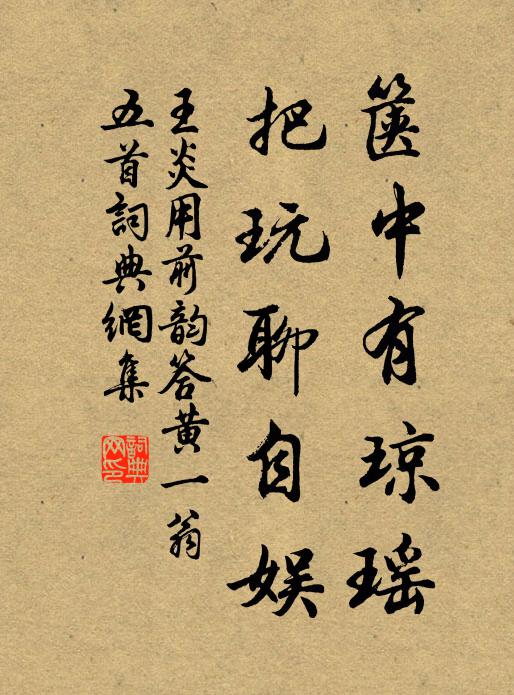 篋中有琼瑶
把玩聊自娱
王炎用前韵答黄一翁
五首詞典網集
詞典网印